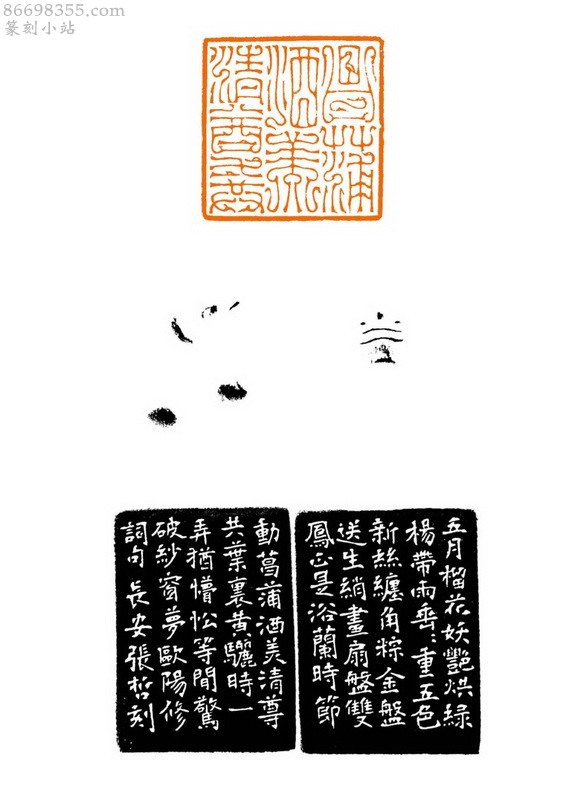 86698355.com
篆刻小站
菖蒲
酒美
清尊共
五月榴花妖艷烘綠
楊帶雨垂:重五色
新絲纏角粽金盤
送生綃畫扇盤雙
鳳正是浴蘭時節
動菖蒲酒美清尊
共葉裏黃驪時一
弄猶懵忪等閒驚
破紗窗夢歐陽修
詞句 長安張哲刻